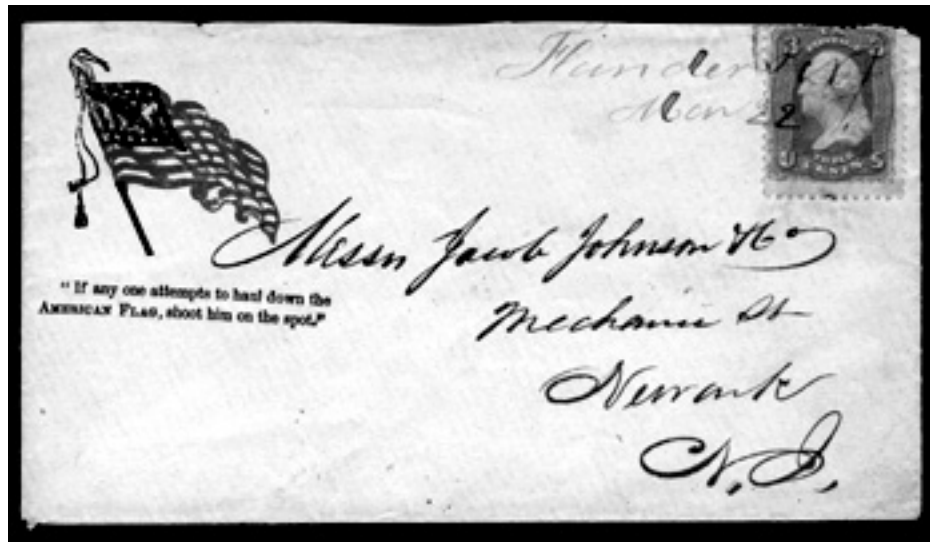 Flanders N J
Nov 22
3 3
U THREE CENTS S
Messrs Jacob Johnson & Co
Mechanic St
Newark
N. J.
"If any one attempts to haul down the
AMERICAN FLAG, shoot him on the spot."